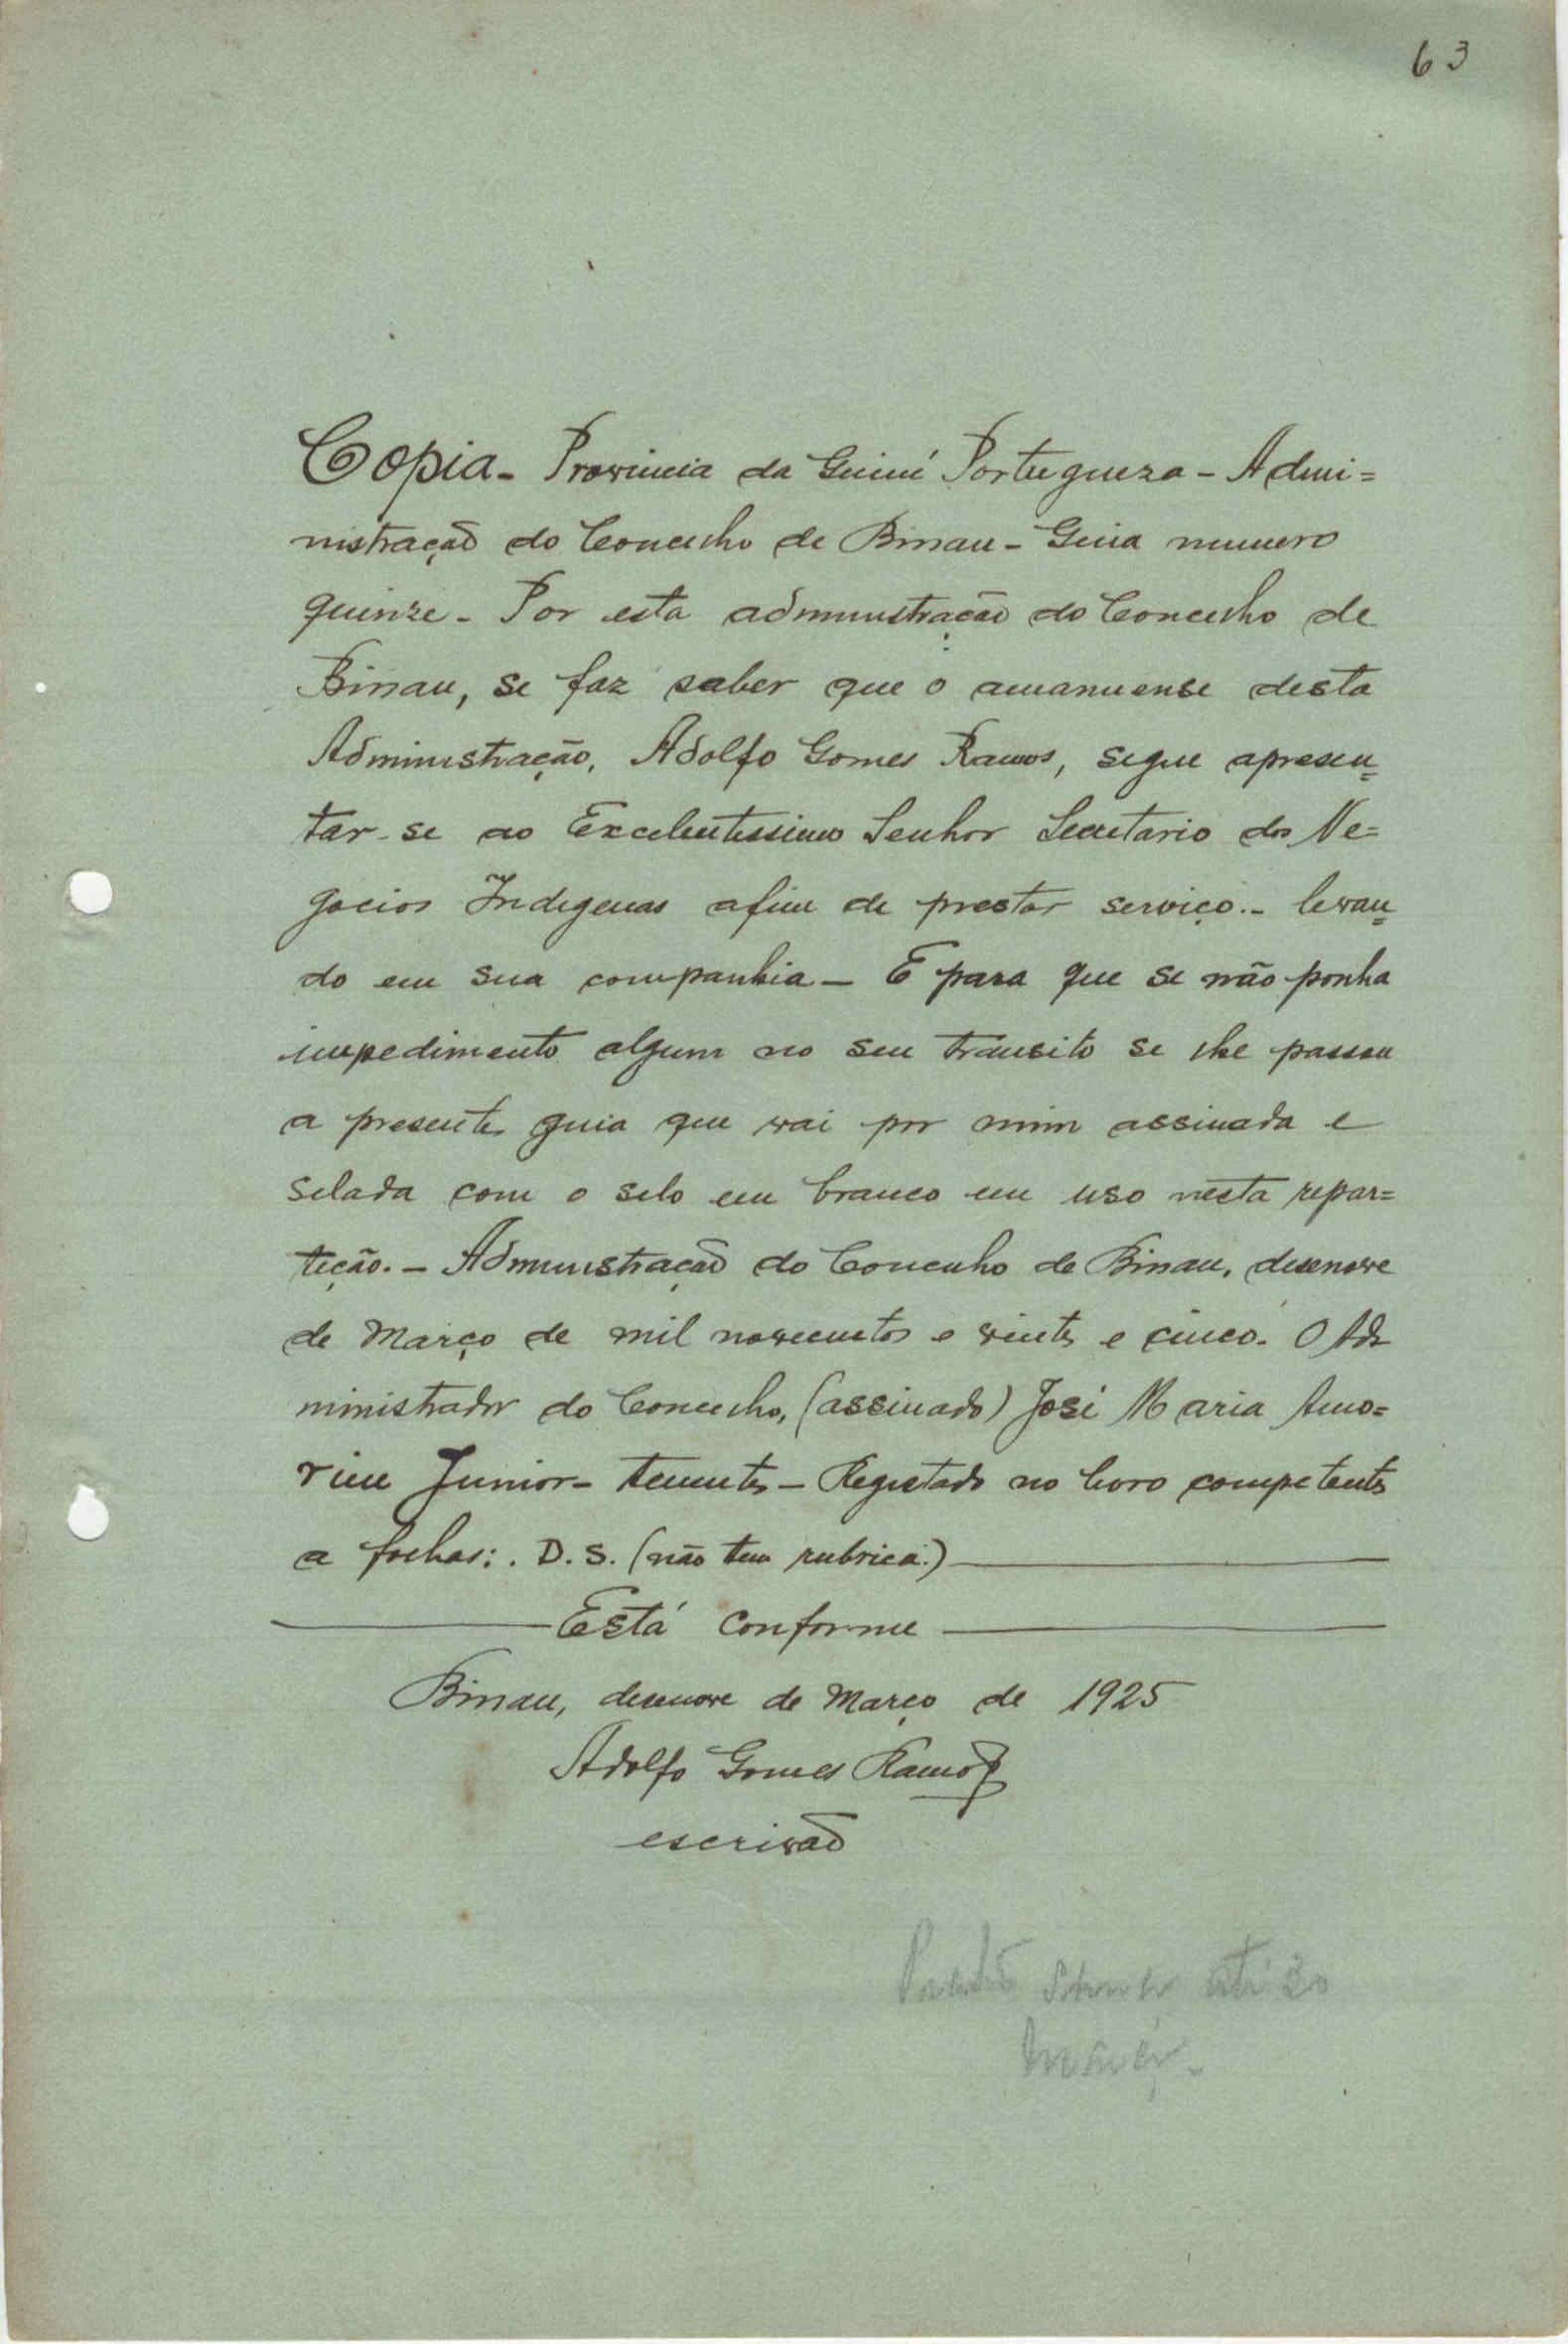 63
Copia - Provincia da Guiné Portugueza - Admi=
nistração do Concelho de Bissau - Guia numero
quinze - Por esta administração do Concelho de
Bissau, se faz saber que o amanuense desta
Administração, Adolfo Gomes Ramos, segue apresen=
tar-se ao Excelentissimo Senhor Secretario dos Ne=
gocios Indigenas afim de prestar serviço.- levan=
do em sua companhia - E para que se não ponha
impedimento algum no seu transito se lhe passou
a presente guia que vai por mim assinada e
selada com o selo em branco em uso nesta repar=
tição. - Administração do Concelho de Bissau, desenove
de Março de mil novecentos e vinte e cinco. O Ad
ministrador do Concelho, (assinado) José Maria Amo=
rim Junior - tenente - Registado no livro competente
a folhas: . D. S. (não tem rubrica.)
Está conforme
Bissau, desenove de Março de 1925
Adolfo Gomes Ramos
escrivão
até 20